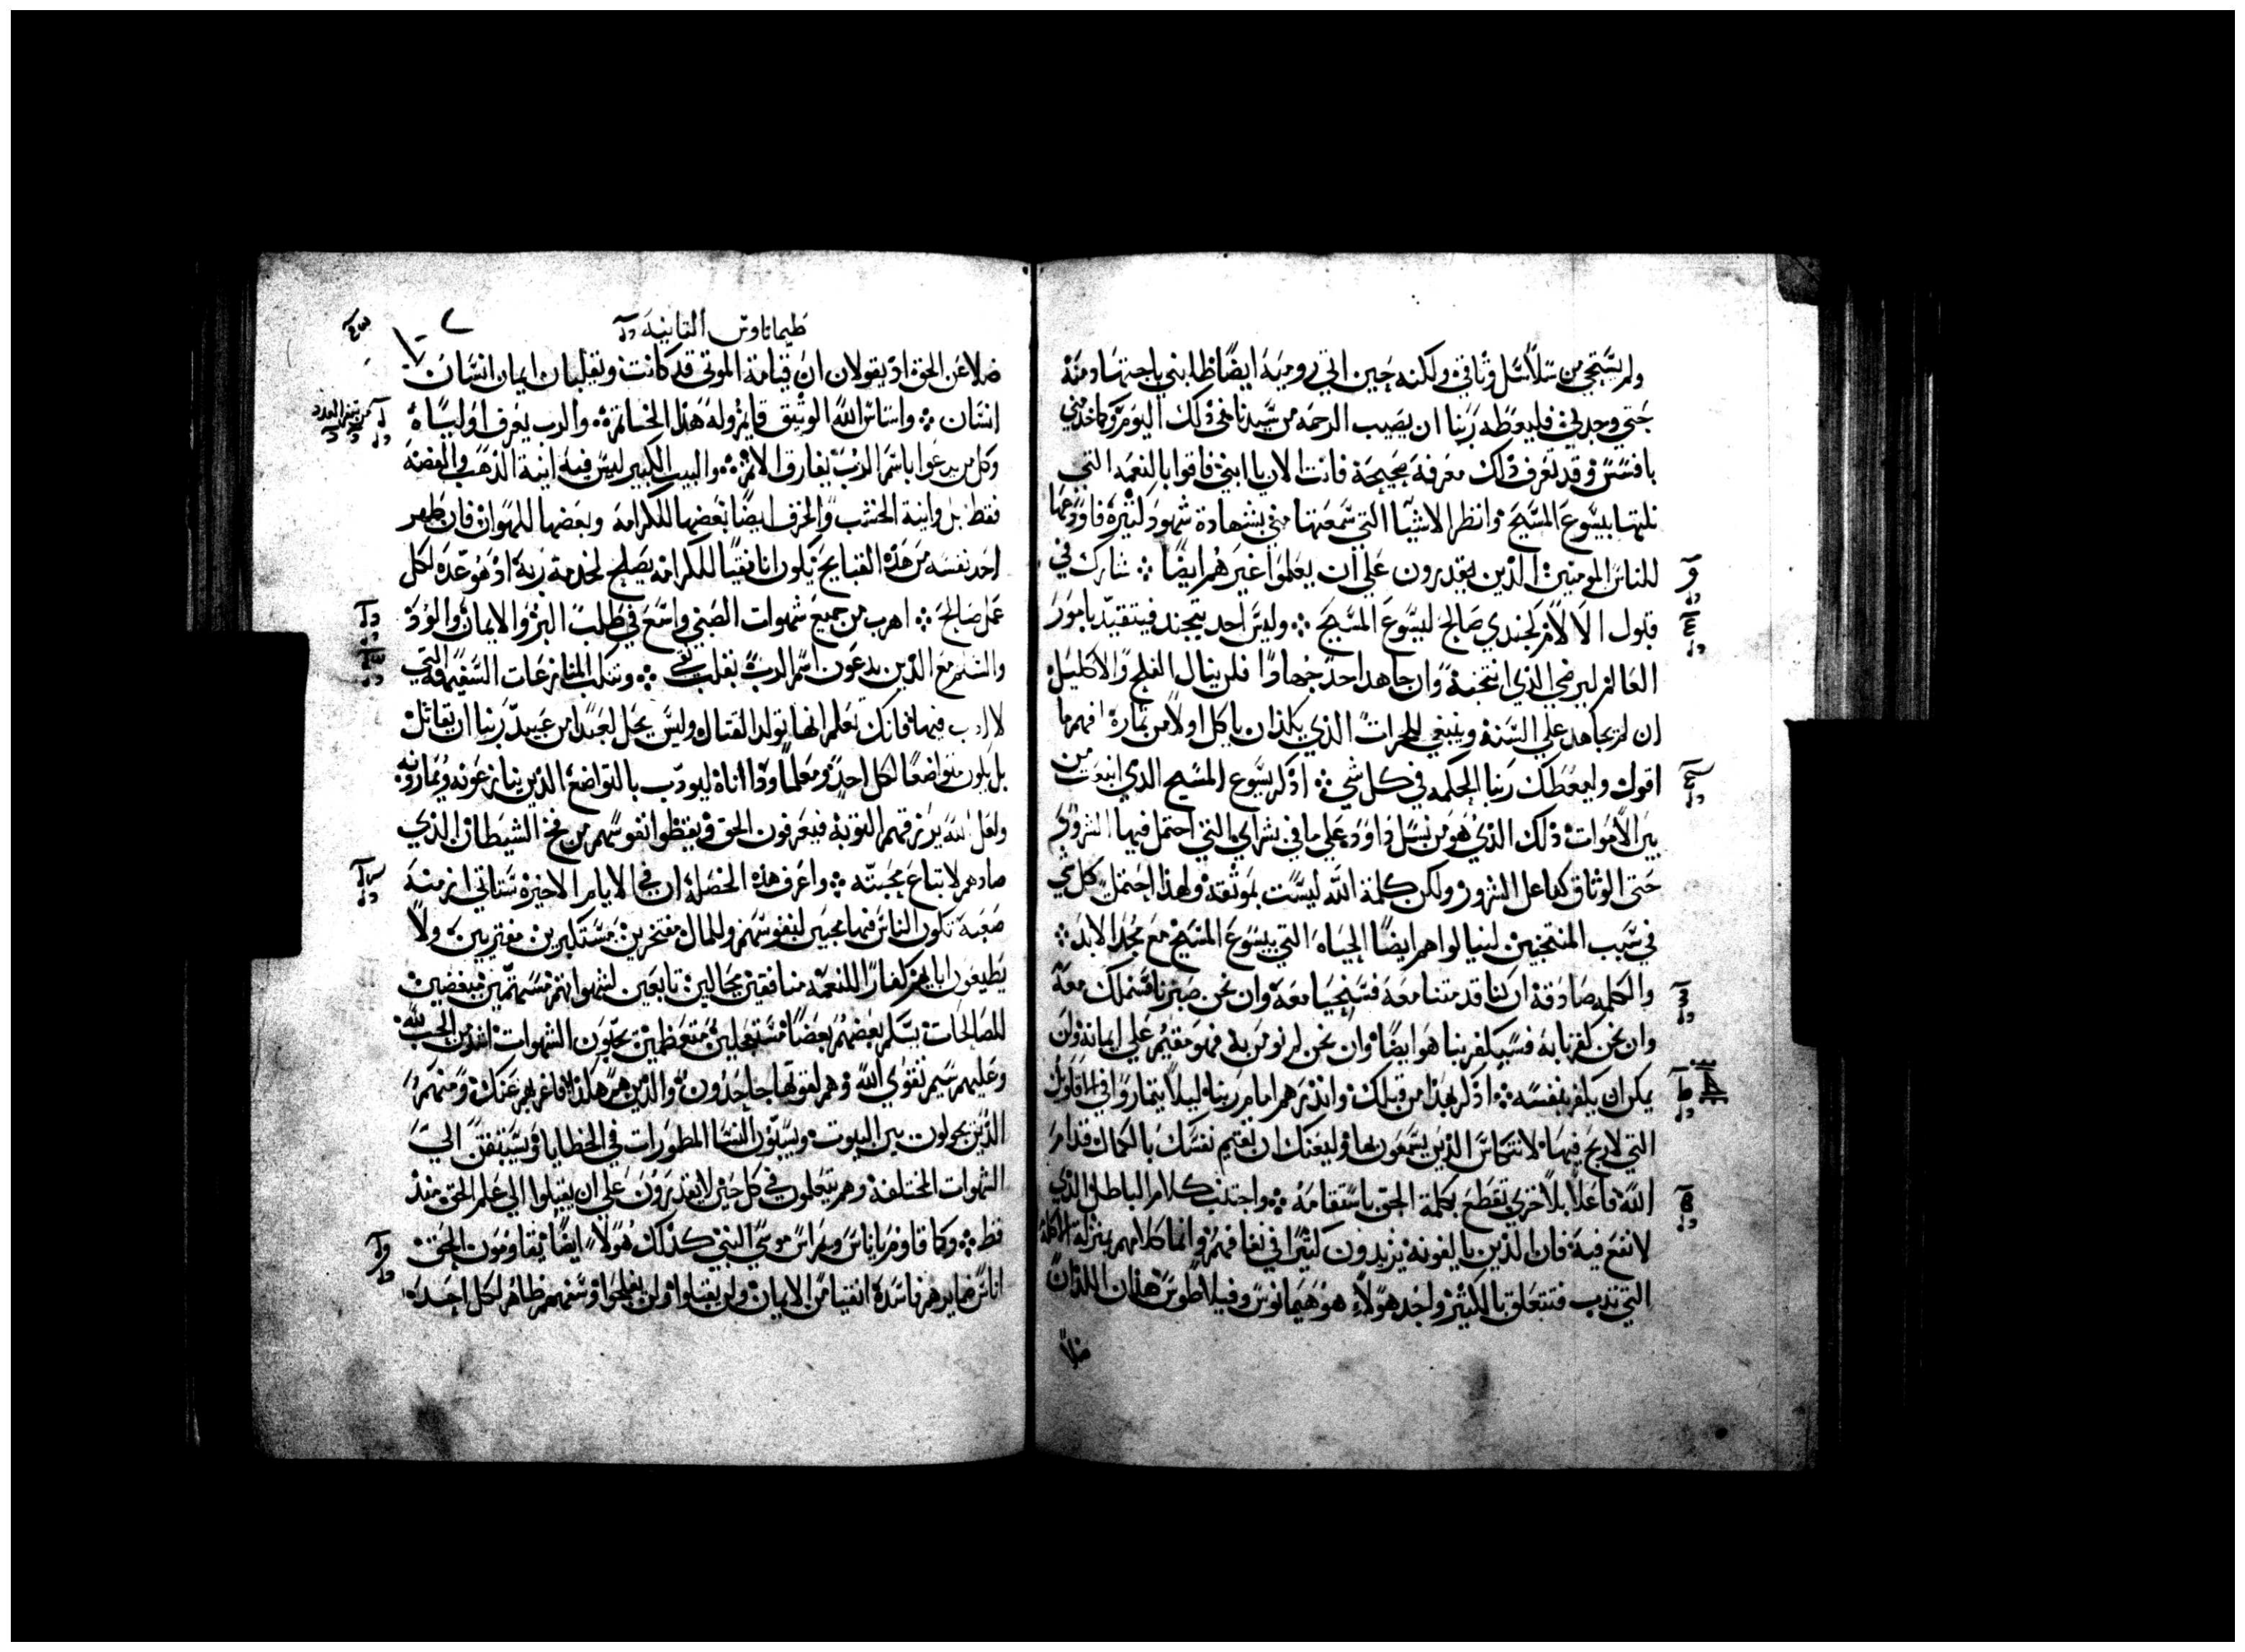 ولم يستحي من سلاسل وثاقي ولكنه حين اتي رومية ايضا طلبني باجتهاد منه
حتي وجدني فليعطه ربنا ان يصيب الرحمه من سيدنا في ذلك اليوم وكما خدمني
بافسس وقد تعرف ذلك معرفة صحيحة فانت الان يا ابني فاقوا بالنعمه التي
نلتها بيسوع المسيح وانظر الاشيا التي سمعتها مني بشهادة شهود كثيرة فاودعها
للناس المومنين الذين يقدرون علي ان يعلموا غيرهم ايضا ۞ شارك في
قبول الالام كجندي صالح ليسوع المسيح ۞ وليس احد يتجند فيتقيد بامور
العالم ليرضي الذي انتخبه وان جاهد احد جهادا فلن ينال الفلج والاكليل
ان لم يجاهد علي السنة وينبغي للحراث الذي يكد ان ياكل اولا من ثماره افهم ما
اقول وليعطك ربنا الحكمه في كل شي ۞ اذكر يسوع المسيح الذي انبعث من
بين الاموات ذلك الذي هو من نسل داوود علي ما في بشراي التي احتمل فيها الشرور
حتي الوثاق كفاعل الشرور ولكن كلمة الله ليست بموثقة ولهذا احتمل كل شي
في سبب المنتخبين لينالوا هم ايضا الحياة التي بيسوع المسيح مع مجد الابد ۞
والكلمه صادقة ان كنا قد متنا معه فسنحيا معه وان نحن صبرنا فسنملك معه
وان نحن كفرنا به فسيكفر بنا هو ايضا وان نحن لم نومن به فهو مقيم علي ايمانه ولن
يمكن ان يكفر بنفسه ۞ اذكر بهذا من قبلك وانذرهم امام ربنا ليلا يتماروا في الاقاويل
التي لا ربح فيها لانتكاس الذين يسمعونها وليعنك ان تقيم نفسك بالكمال قدام
الله فاعلا بلا خزي تقطع بكلمة الحق باستقامة ۞ واجتنب كلام الباطل الذي
لا نفع فيه فان الذين يالفونه يزيدون كثيرا في نفاقهم وانما كلامهم بمنزلة الاكلة
التي تدب فتتعلق بالكثير واحد هولاء هو هيمانوس وفيلاطوس هذان اللذان
ضلا
طيماتاوس الثانية
ضلا عن الحق اذ يقولان ان قيامة الموتي قد كانت ويقلبان ايمان انسان
انسان ۞ واساس الله الوثيق قايم وله هذا الخاتم والرب يعرف اوليااه
وكل من يدعوا باسم الرب يفارق الاثم ۞ والبيت الكبير ليس فيه انية الذهب والفضة
فقط بل وانية الخشب والخزف ايضا بعضها للكرامة وبعضها للهوان فان طهر
احد نفسه من هذه القبايح يكون انا نقيا للكرامة يصلح لخدمة ربه اذ هو عدة لكل
عمل صالح ۞ اهرب من جميع شهوات الصبي واسع في طلب البر والايمان والود
والسلم مع الذين يدعون اسم الرب بقلب نقي ۞ وتنكب المنازعات السفيهة التي
لا ادب فيها فانك تعلم انها تولد القتال وليس يحل لعبد من عبيد ربنا ان يقاتل
بل يكون متواضعا لكل احد ومعلما وذا اناة ليودب بالتواضع الذين ينازعونه ويمارونه
ولعل الله يرزقهم التوبة فيعرفون الحق ويغظوا نفوسهم من فخ الشيطان الذي
صادهم لاتباع محبته ۞ واعرف هذه الخصلة ان في الايام الاخيرة ستاتي ازمنة
صعبة تكون الناس فيها محبين لنفوسهم وللمال مفتخرين مستكبرين مفتريين ولا
يطيعون اباهم كفارا للنعمة منافقين محالين تابعين لشهواتهم نمامين مبغضين
للصالحات يسلم بعضهم بعضا مستعجلين متعظمين يحبون الشهوات اشد من الحب لله
وعليهم سيم تقوي الله وهم لقوتها جاحدون والذين هم هكذا فاغربهم عنك ومنهم
الذين يجولون بين البيوت ويسبون النسا المطمورات في الخطايا ويستبقن الي
الشهوات المختلفة وهم يتعلمون في كل حين لا يقدرون علي ان يقبلوا الي علم الحق منذ
قط ۞ وكما قاوم ياناس ويمراس موسي النبي كذلك هولاء ايضا يقاومون الحق
اناس ضمايرهم فاسدة انفيا من الايمان ولن يقبلوا ولن يفلحوا وسفههم ظاهر لكل احد